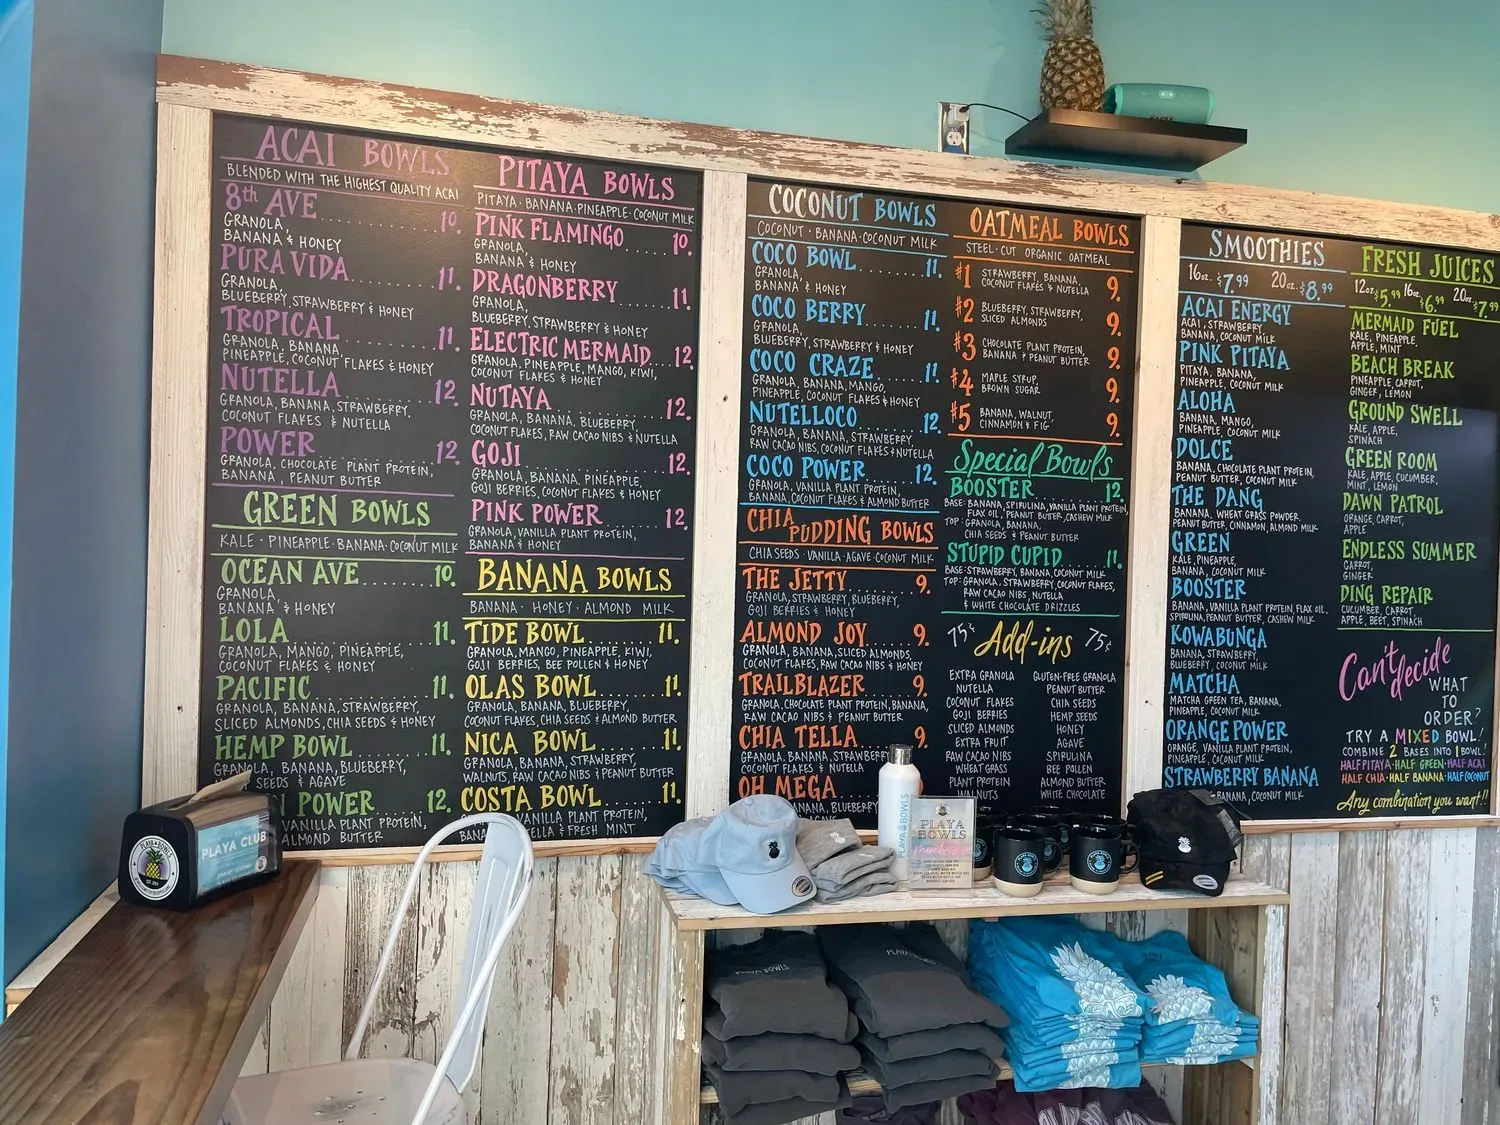 ACAI BOWLS
BLENDED WITH THE HIGHEST QUALITY ACAI
8th AVE 10.
GRANOLA,
BANANA & HONEY
PURA VIDA 11.
GRANOLA,
BLUEBERRY, STRAWBERRY & HONEY
TROPICAL 11.
GRANOLA, BANANA,
PINEAPPLE, COCONUT FLAKES & HONEY
NUTELLA 12.
GRANOLA, BANANA, STRAWBERRY,
COCONUT FLAKES & NUTELLA
POWER 12.
GRANOLA, CHOCOLATE PLANT PROTEIN,
BANANA, PEANUT BUTTER
GREEN BOWLS
KALE · PINEAPPLE · BANANA · COCONUT MILK
OCEAN AVE 10.
GRANOLA,
BANANA & HONEY
LOLA 11.
GRANOLA, MANGO, PINEAPPLE,
COCONUT FLAKES & HONEY
PACIFIC 11.
GRANOLA, BANANA, STRAWBERRY,
SLICED ALMONDS, CHIA SEEDS & HONEY
HEMP BOWL 11.
GRANOLA, BANANA, BLUEBERRY,
SEEDS & AGAVE
POWER 12.
VANILLA PLANT PROTEIN,
ALMOND BUTTER
PITAYA BOWLS
PITAYA · BANANA · PINEAPPLE · COCONUT MILK
PINK FLAMINGO 10.
GRANOLA,
BANANA & HONEY
DRAGONBERRY 11.
GRANOLA,
BLUEBERRY, STRAWBERRY & HONEY
ELECTRIC MERMAID 12.
GRANOLA, PINEAPPLE, MANGO, KIWI,
COCONUT FLAKES & HONEY
NUTAYA 12.
GRANOLA, BANANA, BLUEBERRY,
COCONUT FLAKES, RAW CACAO NIBS & NUTELLA
GOJI 12.
GRANOLA, BANANA, PINEAPPLE,
GOJI BERRIES, COCONUT FLAKES & HONEY
PINK POWER 12.
GRANOLA, VANILLA PLANT PROTEIN,
BANANA & HONEY
BANANA BOWLS
BANANA · HONEY · ALMOND MILK
TIDE BOWL 11.
GRANOLA, MANGO, PINEAPPLE, KIWI,
GOJI BERRIES, BEE POLLEN & HONEY
OLAS BOWL 11.
GRANOLA, BANANA, BLUEBERRY,
COCONUT FLAKES, CHIA SEEDS & ALMOND BUTTER
NICA BOWL 11.
GRANOLA, BANANA, STRAWBERRY,
WALNUTS, RAW CACAO NIBS & PEANUT BUTTER
COSTA BOWL 11.
VANILLA PLANT PROTEIN,
& FRESH MINT
COCONUT BOWLS
COCONUT · BANANA · COCONUT MILK
COCO BOWL 11.
GRANOLA,
BANANA & HONEY
COCO BERRY 11.
GRANOLA,
BLUEBERRY, STRAWBERRY & HONEY
COCO CRAZE 11.
GRANOLA, BANANA, MANGO,
PINEAPPLE, COCONUT FLAKES & HONEY
NUTELLOCO 12.
GRANOLA, BANANA, STRAWBERRY,
RAW CACAO NIBS, COCONUT FLAKES & NUTELLA
COCO POWER 12.
GRANOLA, VANILLA PLANT PROTEIN,
BANANA, COCONUT FLAKES & ALMOND BUTTER
CHIA PUDDING BOWLS
CHIA SEEDS · VANILLA · AGAVE · COCONUT MILK
THE JETTY 9.
GRANOLA, STRAWBERRY, BLUEBERRY,
GOJI BERRIES & HONEY
ALMOND JOY 9.
GRANOLA, BANANA, SLICED ALMONDS,
COCONUT FLAKES, RAW CACAO NIBS & HONEY
TRAILBLAZER 9.
GRANOLA, CHOCOLATE PLANT PROTEIN, BANANA,
RAW CACAO NIBS & PEANUT BUTTER
CHIA TELLA 9.
GRANOLA, BANANA, STRAWBERRY,
COCONUT FLAKES & NUTELLA
OH MEGA
BANANA, BLUEBERRY
OATMEAL BOWLS
STEEL-CUT ORGANIC OATMEAL
#1 STRAWBERRY, BANANA, 9.
COCONUT FLAKES & NUTELLA
#2 BLUEBERRY, STRAWBERRY, 9.
SLICED ALMONDS
#3 CHOCOLATE PLANT PROTEIN, 9.
BANANA & PEANUT BUTTER
#4 MAPLE SYRUP, 9.
BROWN SUGAR
#5 BANANA, WALNUT, 9.
CINNAMON & FIG
Special Bowls
BOOSTER 12.
BASE: BANANA, SPIRULINA, VANILLA PLANT PROTEIN,
FLAX OIL, PEANUT BUTTER, CASHEW MILK
TOP: GRANOLA, BANANA,
CHIA SEEDS & PEANUT BUTTER
STUPID CUPID 11.
BASE: STRAWBERRY, BANANA, COCONUT MILK
TOP: GRANOLA, STRAWBERRY, COCONUT FLAKES,
RAW CACAO NIBS, NUTELLA
& WHITE CHOCOLATE DRIZZLES
75¢ Add-ins 75¢
EXTRA GRANOLA
NUTELLA
COCONUT FLAKES
GOJI BERRIES
SLICED ALMONDS
EXTRA FRUIT
RAW CACAO NIBS
WHEAT GRASS
PLANT PROTEIN
WALNUTS
GLUTEN-FREE GRANOLA
PEANUT BUTTER
CHIA SEEDS
HEMP SEEDS
HONEY
AGAVE
SPIRULINA
BEE POLLEN
ALMOND BUTTER
WHITE CHOCOLATE
SMOOTHIES
16oz. $7.99 20oz. $8.99
ACAI ENERGY
ACAI, STRAWBERRY,
BANANA, COCONUT MILK
PINK PITAYA
PITAYA, BANANA,
PINEAPPLE, COCONUT MILK
ALOHA
BANANA, MANGO,
PINEAPPLE, COCONUT MILK
DOLCE
BANANA, CHOCOLATE PLANT PROTEIN,
PEANUT BUTTER, COCONUT MILK
THE DANG
BANANA, WHEAT GRASS POWDER,
PEANUT BUTTER, CINNAMON, ALMOND MILK
GREEN
KALE, PINEAPPLE,
BANANA, COCONUT MILK
BOOSTER
BANANA, VANILLA PLANT PROTEIN, FLAX OIL,
SPIRULINA, PEANUT BUTTER, CASHEW MILK
KOWABUNGA
BANANA, STRAWBERRY,
BLUEBERRY, COCONUT MILK
MATCHA
MATCHA GREEN TEA, BANANA,
PINEAPPLE, COCONUT MILK
ORANGE POWER
ORANGE, VANILLA PLANT PROTEIN,
PINEAPPLE, COCONUT MILK
STRAWBERRY BANANA
BANANA, COCONUT MILK
FRESH JUICES
12oz. $5.99 16oz. $6.99 20oz. $7.99
MERMAID FUEL
KALE, PINEAPPLE,
APPLE, MINT
BEACH BREAK
PINEAPPLE, CARROT,
GINGER, LEMON
GROUND SWELL
KALE, APPLE,
SPINACH
GREEN ROOM
KALE, APPLE, CUCUMBER,
MINT, LEMON
DAWN PATROL
ORANGE, CARROT,
APPLE
ENDLESS SUMMER
CARROT,
GINGER
DING REPAIR
CUCUMBER, CARROT,
APPLE, BEET, SPINACH
Can't decide
WHAT
TO
ORDER?
TRY A MIXED BOWL!
COMBINE 2 BASES INTO 1 BOWL!
HALF PITAYA · HALF GREEN · HALF ACAI
HALF CHIA · HALF BANANA · HALF COCONUT
Any combination you want!!
PLAYA BOWLS
PLAYA CLUB
PLAYA BOWLS
PLAYA
BOWLS
PLAYA BOWLS